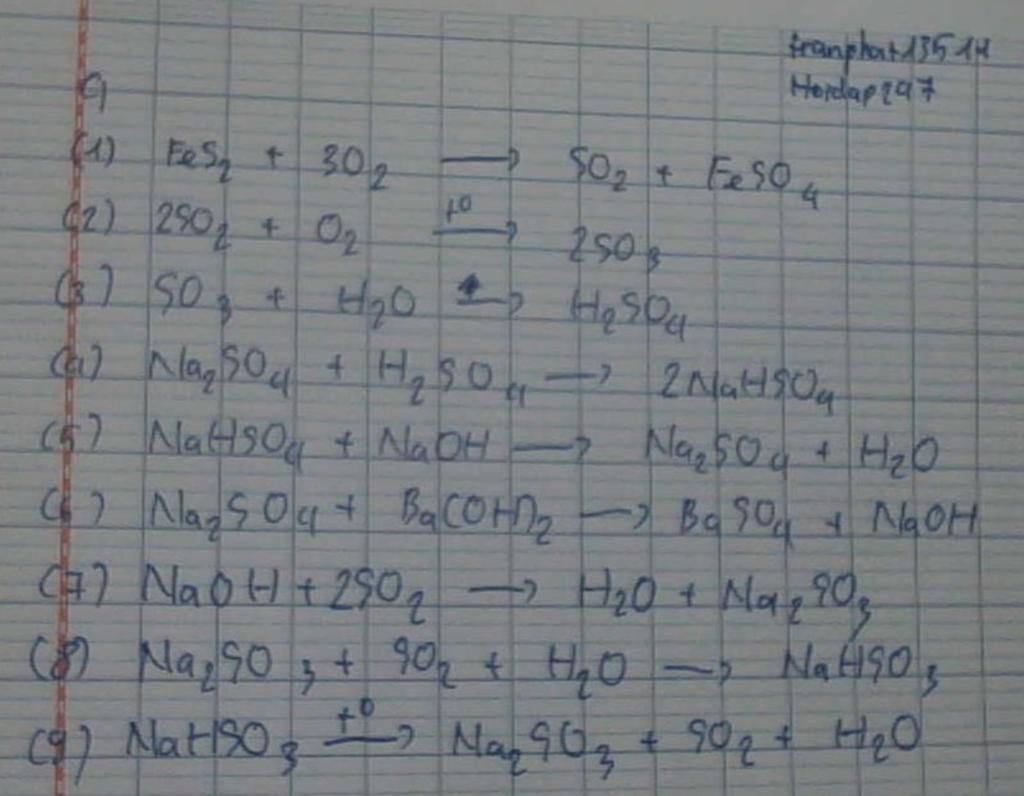 tranphat13514
Hoidap247
9
(1) FeS₂ + 3O₂ → SO₂ + FeSO₄
(2) 2SO₂ + O₂ t° → 2SO₃
(3) SO₃ + H₂O → H₂SO₄
(4) Na₂SO₄ + H₂SO₄ → 2NaHSO₄
(5) NaHSO₄ + NaOH → Na₂SO₄ + H₂O
(6) Na₂SO₄ + Ba(OH)₂ → BaSO₄ + NaOH
(7) NaOH + 2SO₂ → H₂O + Na₂SO₃
(8) Na₂SO₃ + SO₂ + H₂O → NaHSO₃
(9) NaHSO₃ t° → Na₂SO₃ + SO₂ + H₂O